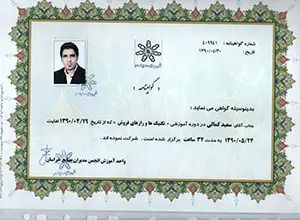 شماره گواهینامه : ۴۰۹۹۴۱
تاریخ : ۱۳۹۰/۰۵/۳۰
« گواهینامه »
بدینوسیله گواهی می نماید :
جناب آقای سعید کمالی در دوره آموزشی « تکنیک ها و رازهای فروش » که از تاریخ ۱۳۹۰/۰۴/۲۹ لغایت
۱۳۹۰/۰۵/۲۴ به مدت ۳۲ ساعت برگزار شده است . شرکت نموده اند .
واحد آموزش انجمن مدیران صنایع خراسان